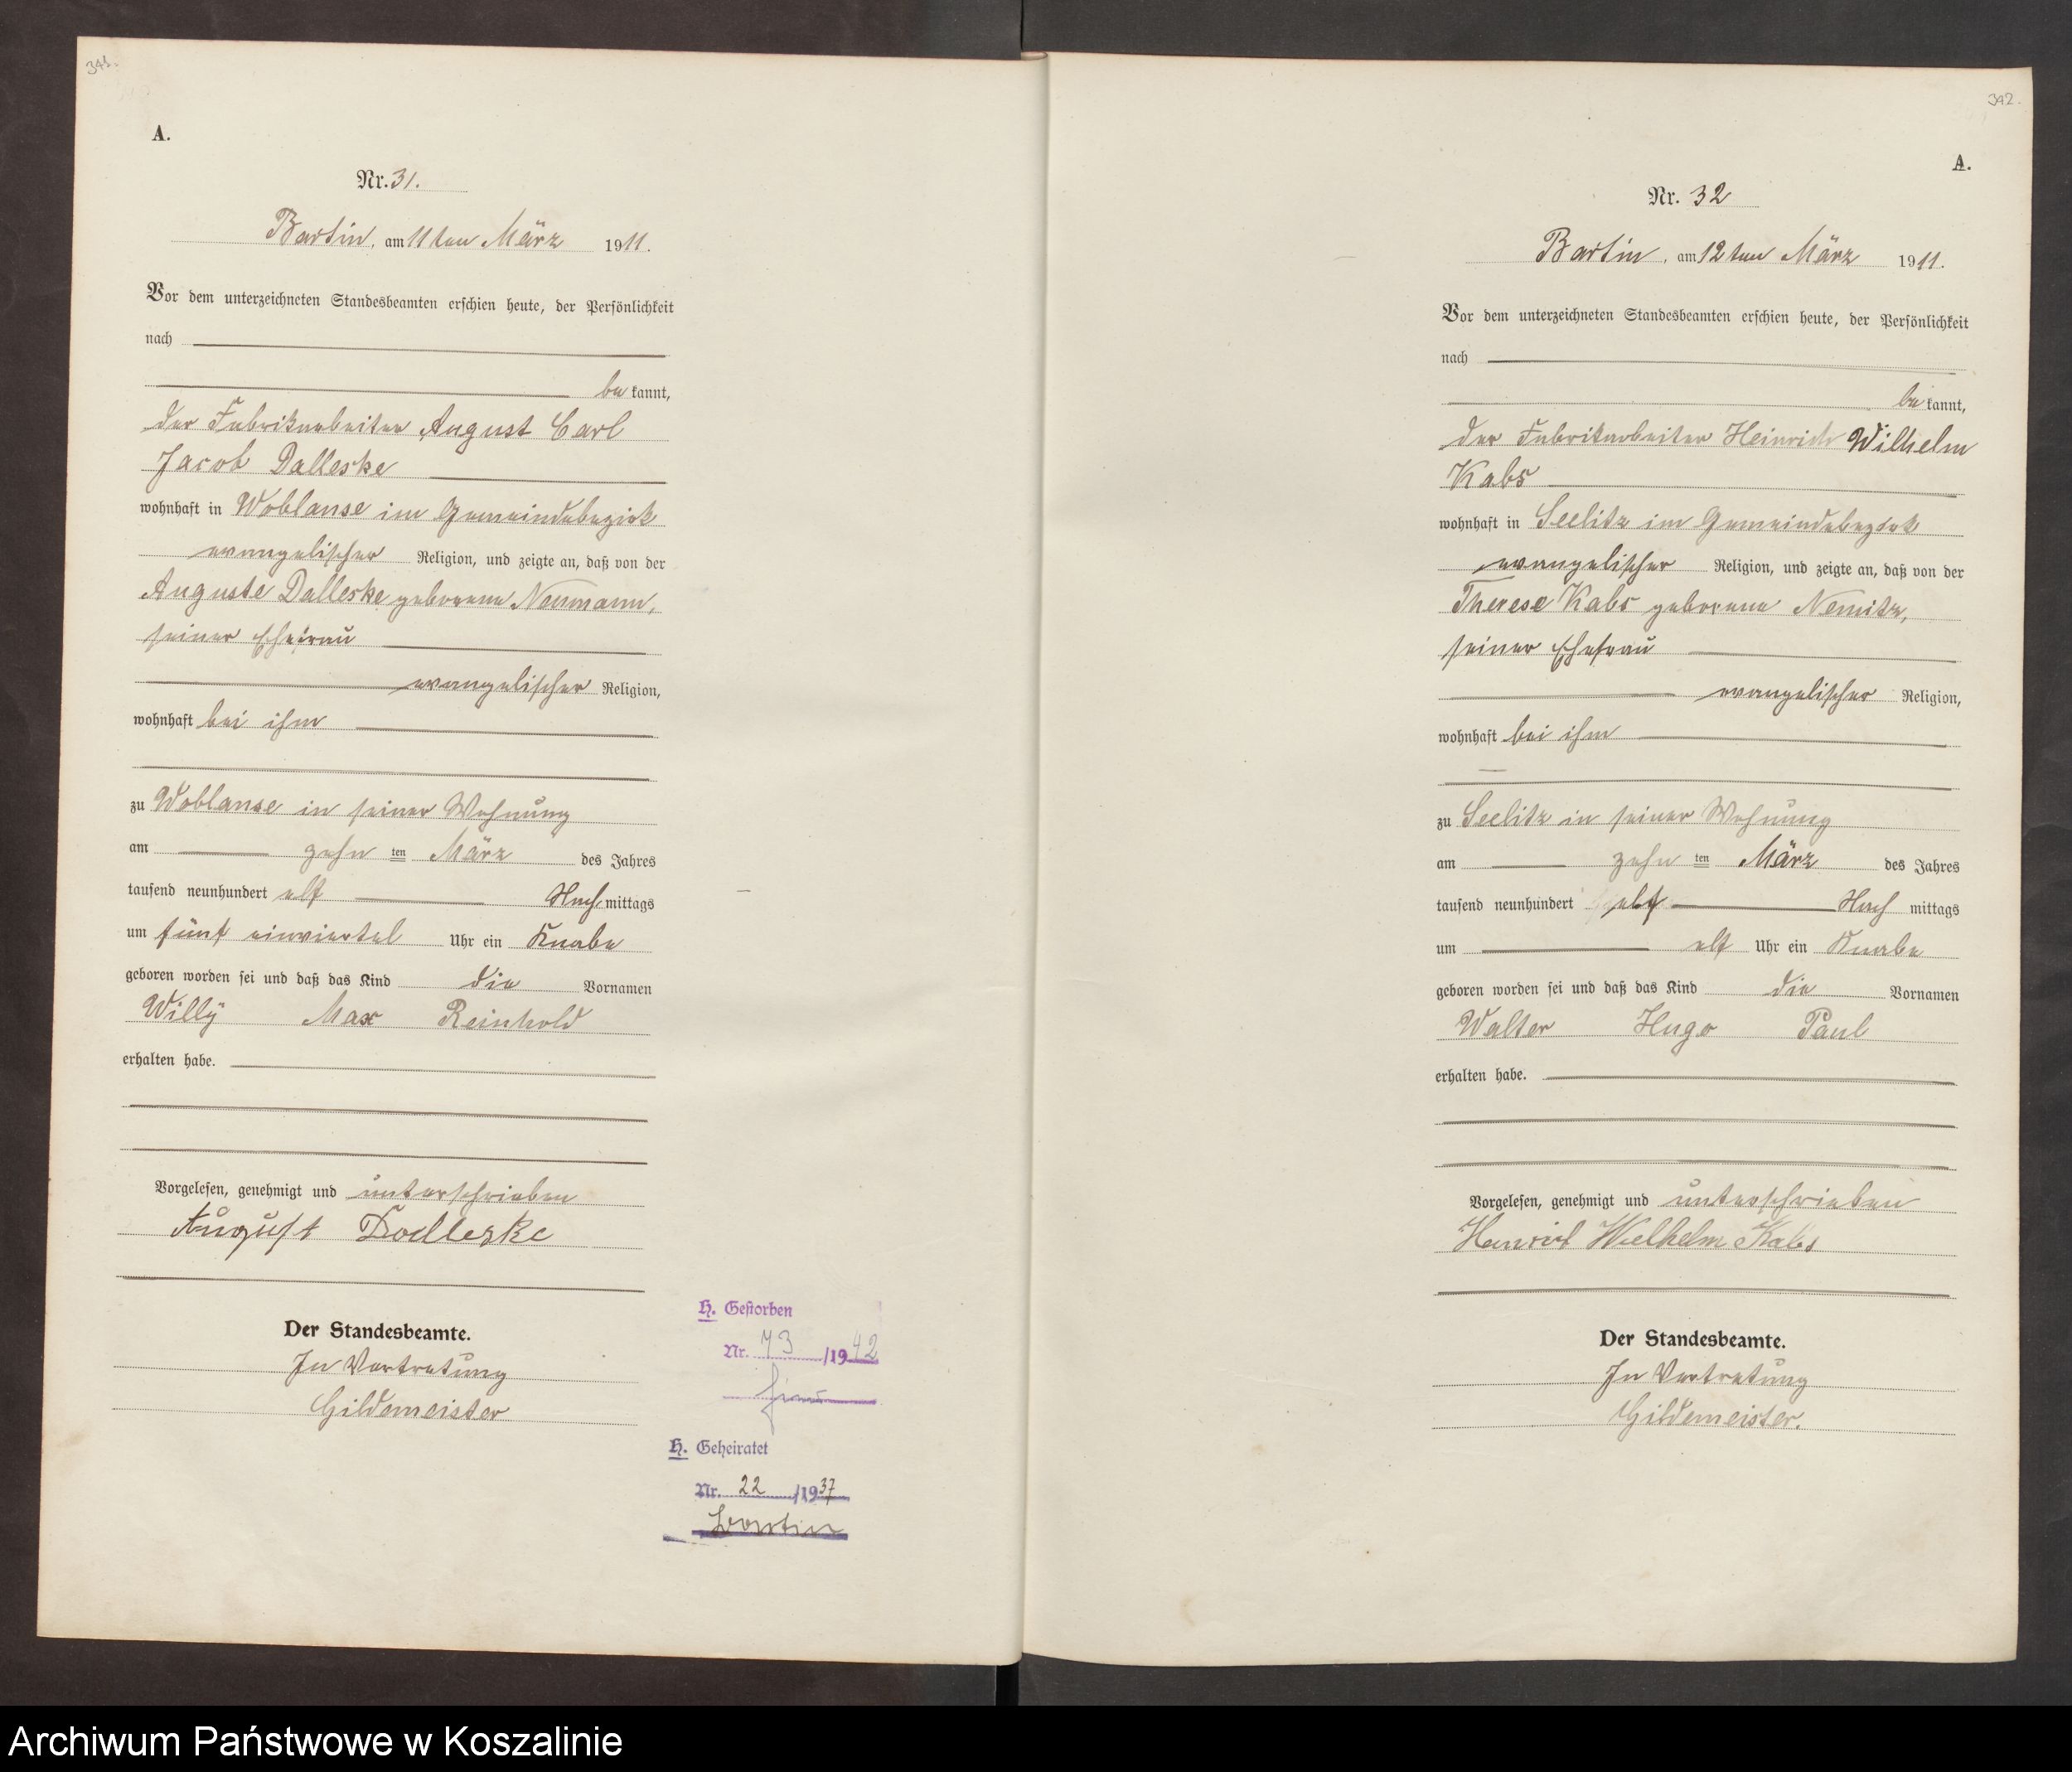 341.
A.
Nr. 31.
Bartin, am 11ten März 1911.
Vor dem unterzeichneten Standesbeamten erschien heute, der Persönlichkeit
nach
bekannt,
der Fabrikarbeiter August Carl
Jacob Dalleske
wohnhaft in Woblanse im Gemeindebezirk
evangelischer Religion, und zeigte an, daß von der
Auguste Dalleske geborene Neumann,
seiner Ehefrau
evangelischer Religion,
wohnhaft bei ihm
zu Woblanse in seiner Wohnung
am zehn ten März des Jahres
tausend neunhundert elf Nachmittags
um fünf einviertel Uhr ein Knabe
geboren worden sei und daß das Kind die Vornamen
Willy Max Reinhold
erhalten habe.
Vorgelesen, genehmigt und unterschrieben
August Dodleske
Der Standesbeamte.
In Vertretung
Gildemeister
H. Gestorben
Nr. 73/1942
H. Geheiratet
Nr. 22/1937
Bartin
342.
A.
Nr. 32
Bartin, am 12ten März 1911.
Vor dem unterzeichneten Standesbeamten erschien heute, der Persönlichkeit
nach
bekannt,
der Fabrikarbeiter Heinrich Wilhelm
Kabs
wohnhaft in Seelitz im Gemeindebezirk
evangelischer Religion, und zeigte an, daß von der
Therese Kabs geborene Nemitz,
seiner Ehefrau
evangelischer Religion,
wohnhaft bei ihm
zu Seelitz in seiner Wohnung
am zehn ten März des Jahres
tausend neunhundert elf Nachmittags
um elf Uhr ein Knabe
geboren worden sei und daß das Kind die Vornamen
Walter Hugo Paul
erhalten habe.
Vorgelesen, genehmigt und unterschrieben
Heinrich Wilhelm Kabs
Der Standesbeamte.
In Vertretung
Gildemeister.
Archiwum Państwowe w Koszalinie